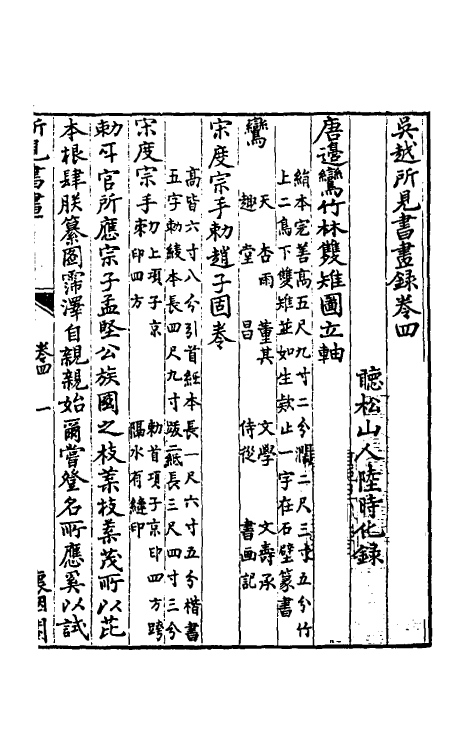 吳越所見書畫錄卷四
聽松山人陸時化錄
唐邊鸞竹林雙雉圖立軸
絹本完善高五尺九寸二分濶二尺三寸五分竹
上二鳥下雙雉並如生款止一字在石壁篆書
鸞
天 杏雨 董其 文學 文壽承
趣 堂 昌 侍從 書画記
宋度宗手勅趙子固卷
高皆六寸八分引首紙本長一尺六寸五分楷書
五字勅綾本長四尺九寸跋二紙長三尺四寸三分
宋度宗手勅
勅上項子京 勅首項子京印四方跨
印四方 隔水有縫印
勅斗官所應宗子孟堅公族國之枝葉枝葉茂所以芘
本根肆朕纂圖霈澤自親親始爾嘗登名所應奚以試
所見書畫 卷四 一